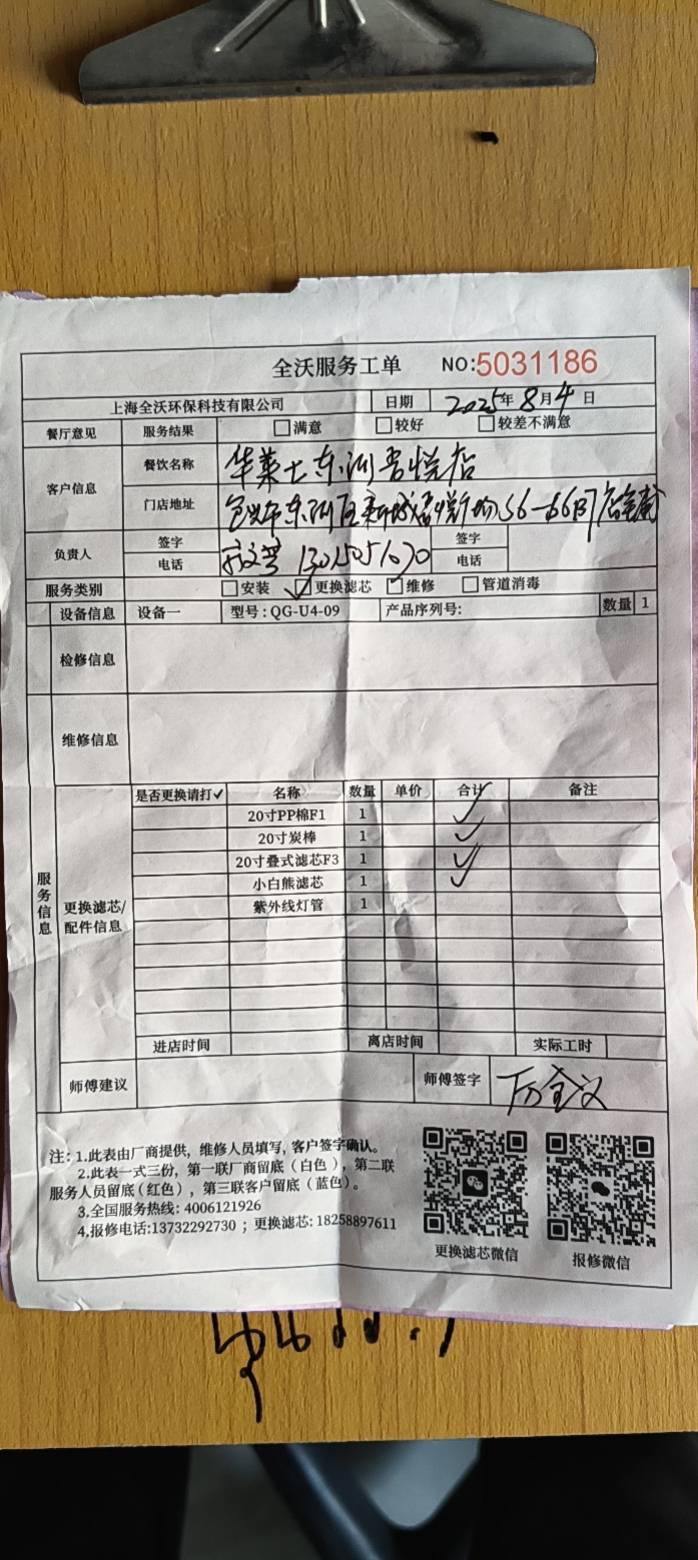 全沃服务工单 NO:5031186
上海全沃环保科技有限公司 日期 2025年8月4日
餐厅意见 服务结果 □满意 □较好 □较差不满意
客户信息 餐饮名称 华莱士东洲吾悦店
门店地址
负责人 签字 签字
电话 电话
服务类别 □安装 ✓□更换滤芯 □✓维修 □管道消毒
设备信息 设备一 型号:QG-U4-09 产品序列号: 数量 1
检修信息
维修信息
服务信息
更换滤芯/配件信息
是否更换请打✓ 名称 数量 单价 合计 备注
20寸PP棉F1 1 ✓
20寸炭棒 1 ✓
20寸叠式滤芯F3 1 ✓
小白熊滤芯 1 ✓
紫外线灯管 1
进店时间 离店时间 实际工时
师傅建议 师傅签字
注:1.此表由厂商提供,维修人员填写,客户签字确认。
2.此表一式三份,第一联厂商留底(白色),第二联
服务人员留底(红色),第三联客户留底(蓝色)。
3.全国服务热线:4006121926
4.报修电话:13732292730;更换滤芯:18258897611
更换滤芯微信 报修微信